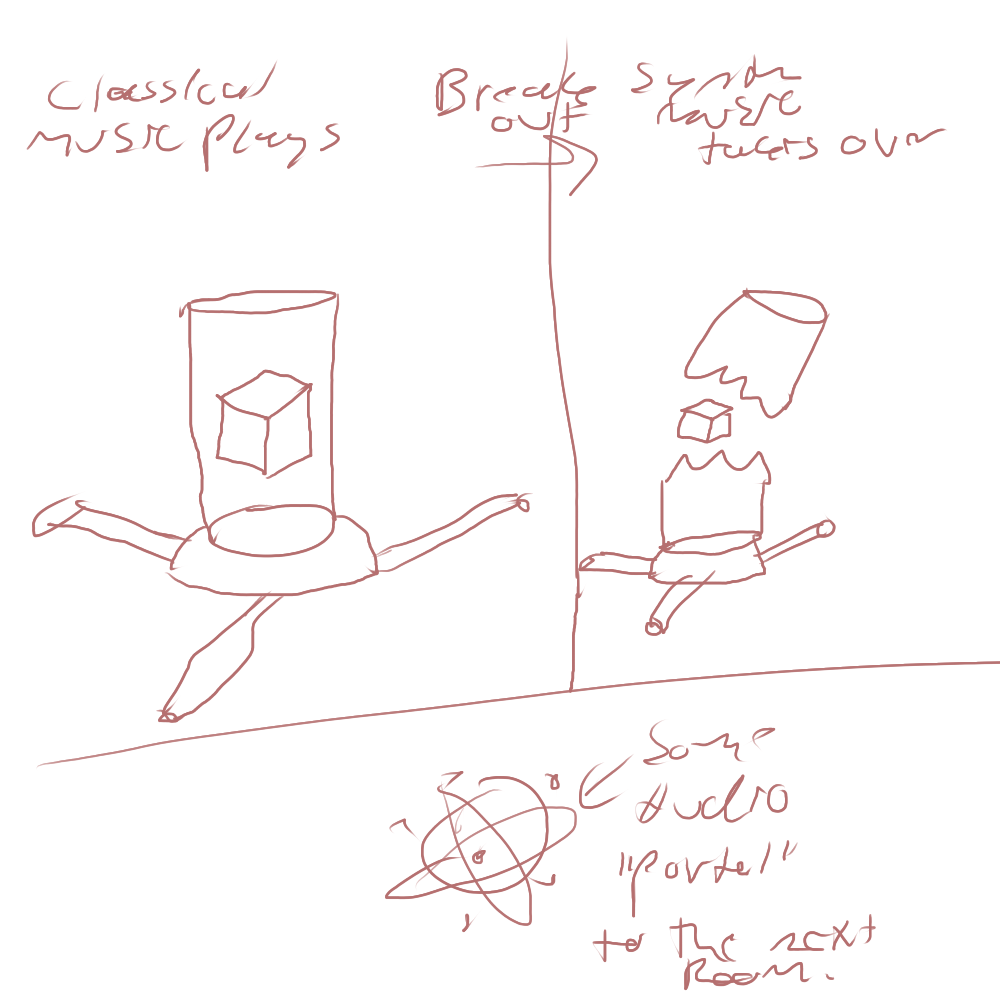 Classical
music plays
Break
out
Synth
music
takes over
Some
Audio
"Portal"
to the next
Room.